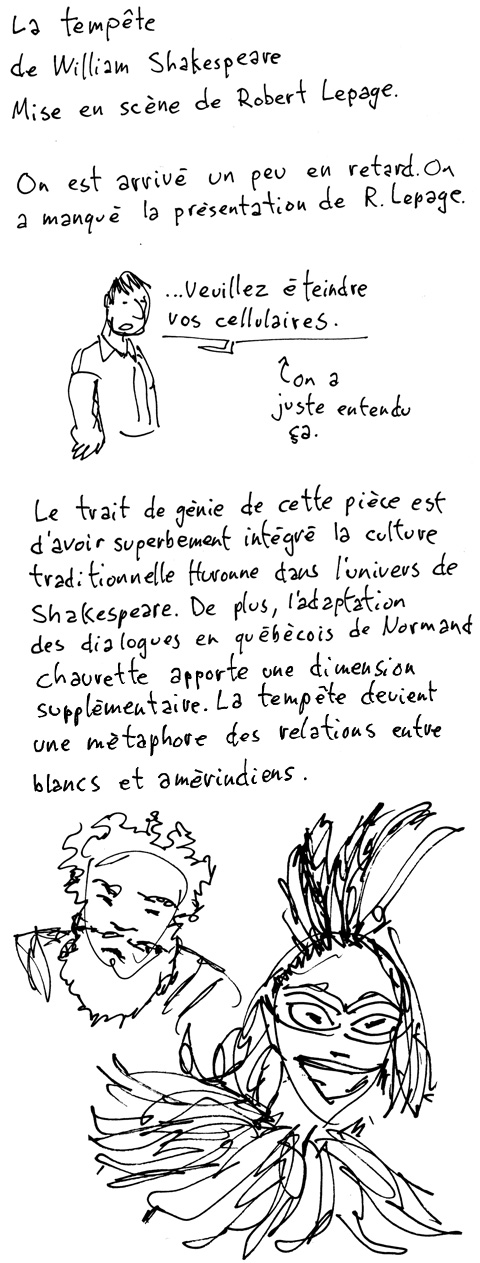 La tempête
de William Shakespeare
Mise en scène de Robert Lepage.
On est arrivé un peu en retard. On
a manqué la présentation de R. Lepage.
...Veuillez éteindre
vos cellulaires.
on a
juste entendu
ça.
Le trait de génie de cette pièce est
d'avoir superbement intégré la culture
traditionnelle Huronne dans l'univers de
Shakespeare. De plus, l'adaptation
des dialogues en québécois de Normand
chaurette apporte une dimension
supplémentaire. La tempête devient
une métaphore des relations entre
blancs et amérindiens.